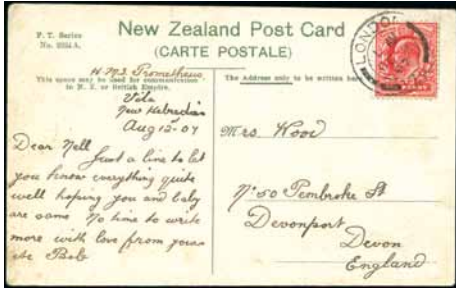 F. T. Series
No. 2034 A.
New Zealand Post Card
(CARTE POSTALE)
LONDON
H.M.S. Prometheus
This space may be used for communication
in N. Z. or British Empire.
The Address only to be written here
Vila
New Hebredies
Aug 12-07
Dear Nell
Just a line to let
you know everything quite
well hoping you and baby
are same No time to write
more with love from yours
etc Bob
Mrs. Wood
No 50 Pembroke St
Devonport
Devon
England